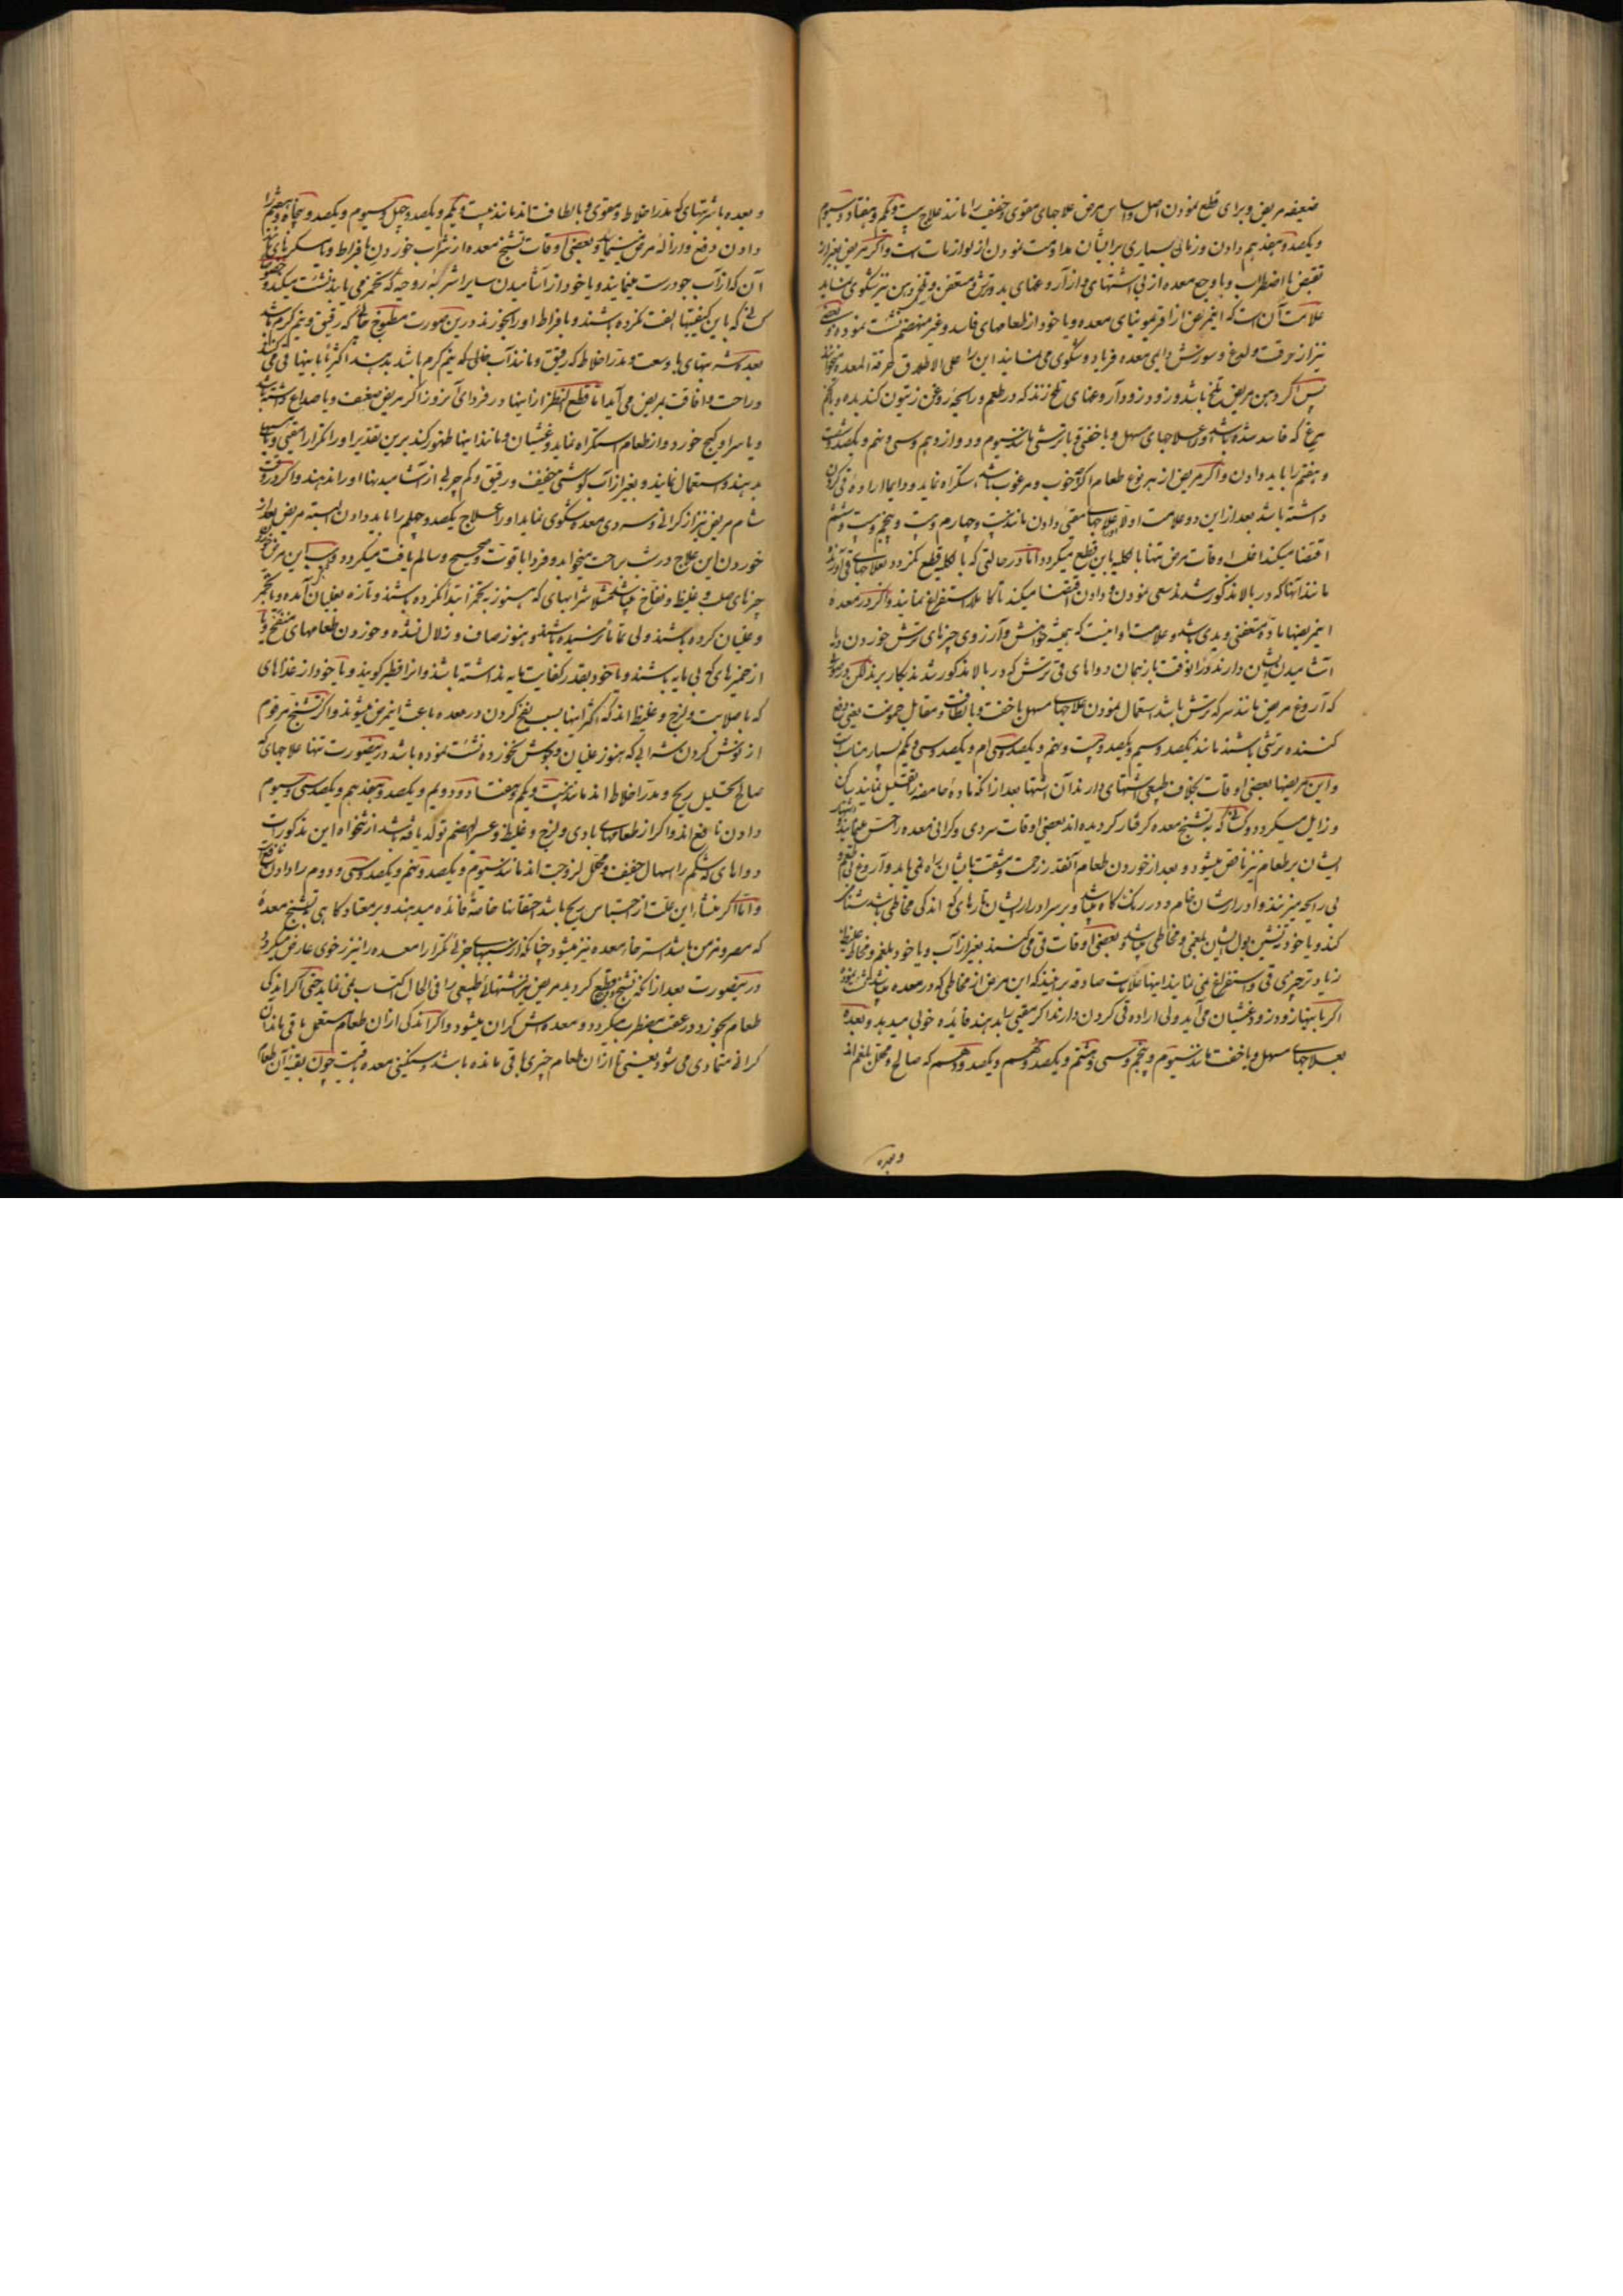 ضعیفه مریض و برای قطع نمودن اصل و اساس مرض علاجهای مقوی و خفیف را مانند علاج بیست و یکم و هفتاد و سیوم
و یکصد و هفدهم دادن و زمانی بسیاری بر ایشان مداومت نمودن از لوازمات است و اگر مریض بغیر از
تقبض با اضطراب و یا وجع معده از بی اشتهای و از آروغهای بد و ترش و متعفن و تلخی دهن نیز شکوی نماید
علامت آنست که اینمرض از معده و یا خود از طعامهای فاسد و غیر منهضم نشئت نموده و بعضی
نیز از حرقت و لوغ و سوزش دایمی معده فریاد و شکوی می نمایند این را علی الاطلاق حرقة المعده میخوانند
پس اگر دهن مریض تلخ باشد و زود زود آروغهای تلخ زند که در طعم و رایحه روغن زیتون کندیده و تخم
مرغ که فاسد شده باشد او را علاجهای سهل و با خفتی با ترشی مانند سیوم و دوازدهم و سی و پنجم و یکصد و شصت
و هفتم را باید دادن و اگر مریض از هر نوع طعام اگرچه خوب و مرغوب باشد استکراه نماید و دایما اراده قی کردن
داشته باشد بعد از این دو علامت اولا علاجهای مقیی دادن مانند بیست و چهارم و بیست و پنجم و بیست و ششم
اقتضا میکند اغلب اوقات مرض تنها بالکلیه باین قطع میگردد اما در حالتی که بالکلیه قطع نگردد بعلاجهای قی آورنده
مانند آنها که در بالا مذکور شدند سعی نمودن و دادن اقتضا میکند تا کاملا استفراغ نمایند و اگر در معده
این مریضها ماده متعفنی و بدی باشد و علامت او اینست که همیشه خواهش و آرزوی چیزهای ترش خوردن و یا
آشامیدن ایشان دارند در آنوقت باز همان دواهای قی ترش که در بالا مذکور شدند بکار برند لکن در صورتی
که آروغ مریض مانند سرکه ترش باشد استعمال نمودن علاجهای مسهل با خفت و با لطافت و مقابل حموضت یعنی دفع
کننده ترشی باشند مانند یکصد و سیم و یکصد و بیست و پنجم و یکصد و سی ام و یکصد و سی و یکم بسیار مناسبست
و این مریضها بعضی اوقات بخلاف طبیعی اشتهای دارند آن اشتها بعد از آنکه ماده حامضه را تقلیل نمایند ساکن
و زایل میگردد و کسانی که به تشنج معده گرفتار گردیده اند بعضی اوقات سردی و گرانی معده را حس مینمایند و اشتهای
ایشان بر طعام نیز ناقص میشود و بعد از خوردن طعام آنقدر زحمت و مشقت بایشان راه می یابد و آروغ بی طعم و
بی رایحه میزنند و ادرار ایشان خام و در رنگ کاه میباشد و بر سر ادرار ایشان تارهای که اندکی مخاطی باشد شناوری
کند و یا خود ته نشین بول ایشان بلغمی و مخاطی میباشد و بعضی اوقات قی می کنند بغیر از آب و یا خود بلغم و مخاط غلیظ
زیاد تر چیزی قی و استفراغ نمی نمایند اینها علامات صادقه بر اینند که این مرض از مخاطی که در معده میباشد نشئت نموده
اگر باینها زود زود غشیان می آید ولی اراده قی کردن دارند اگر مقیی بدهند فائده خوبی میدهد و بعده
بعلاجهای مسهل و با خفت مانند سیوم و پنجم و سی و هشتم و یکصد و نهم و یکصد و دهم که صالح و محلل بلغم اند
و بعده
و بعده با شربتهای که مدر اخلاط و مقوی و بالطافت اند مانند بیست و یکم و یکصد و چهل و سیوم و یکصد و پنجاه و هفتم را
دادن دفع و ازاله مرض مینماید و بعضی اوقات تشنج معده از شراب خوردن بافراط و یا مسکرهای مانند
آن که از آب جو درست مینمایند و یا خود از آشامیدن سایر اشربه روحیه که تخمر می یابد نشئت میکند خصوصا
کسانی که باین کیفیتها الفت نکرده باشند و بافراط او را بخورند درین صورت مطبوخ چای که رقیق و نیم گرم باشد
بعده شربتهای با وسعت و مدر اخلاط که رقیق و مانند آب چای که نیم گرم باشد بدهند اکثریا باینها قی می کنند
و راحت و افاقت بمریض می آید اما قطع النظر از اینها در فردای آنروز اگر مریض ضعیف و یا صداع داشته باشد
و یا سر او گیج خورد و از طعام استکراه نماید و غشیان و مانند اینها ظهور کند برین تقدیر او را تکرار مقیی و یا مسهل
بدهند و استعمال نمایند و بغیر از آب گوشتی خفیف و رقیق و کم چربی از آشامیدنیها او را ندهند و اگر در وقت
شام مریض نیز از گرانی و سردی معده شکوی نماید او را علاج یکصد و چهلم را باید دادن البته مریض بعد از
خوردن این علاج در شب براحت میخوابد و فردا با قوت و صحیح و سالم یافت میگردد و سبب این مرض خوردن
چیزهای صلب و غلیظ و نفاخ میباشد مثلا شرابهای که هنوز به تخمر ابتدا نکرده باشند و تازه بغلیان آمده و یا تخمر
و غلیان کرده باشند ولی تماما نرسیده باشند و هنوز صاف و زلال نشده و خوردن طعامهای منفخ و یا
از خمیرهای که بی مایه باشند و یا خود بقدر کفایت مایه نداشته باشند و آنرا فطیر گویند و یا خود از غذاهای
که با صلابت و لزج و غلیظ اند که اکثر اینها بسبب نفخ کردن در معده باعث اینمرض میشوند و اگر تشنج مرقوم
از نوش کردن شرابی که هنوز غلیان و جوش نخورده نشئت نموده باشد درینصورت تنها علاجهای که
صالح تحلیل ریح و مدر اخلاط اند مانند بیست و یکم و هفتاد و دویم و یکصد و هفدهم و یکصد و سی و سیوم
دادن نافع اند و اگر از طعامهای بادی و لزج و غلیظ و عسر الهضم تولد یافته باشد از نتخواه این مذکورات
دواهای که شکم را اسهال خفیف و محلل لزوجت اند مانند سیوم و یکصد و پنجم و یکصد و سی و دوم را دادن نافع است
و اما اگر منشأ این علت از احتباس ریح باشد احتقانها خاصة فائده میدهند و بر معتاد گاهی تشنج معده
که مصر و مزمن باشد استرخای معده نیز میشود چنانکه از سببهای جزئی تکرار معده را نیز زخوی عارض میگردد
درینصورت بعد از آنکه تشنج و وجع قطع گردید مریض نیز اشتهای طبیعی را فی الحال اکتساب نمی نماید حتی اگر اندکی
طعام بخورد در عقب مضطرب میگردد و معده اش گران میشود و اگر اندکی از آن طعام مستعمل باقی ماند آن
گرانی متمادی می شود یعنی تا از آن طعام چیزی باقی مانده باشد و سنگینی معده باقیست چون بقیه آن طعام